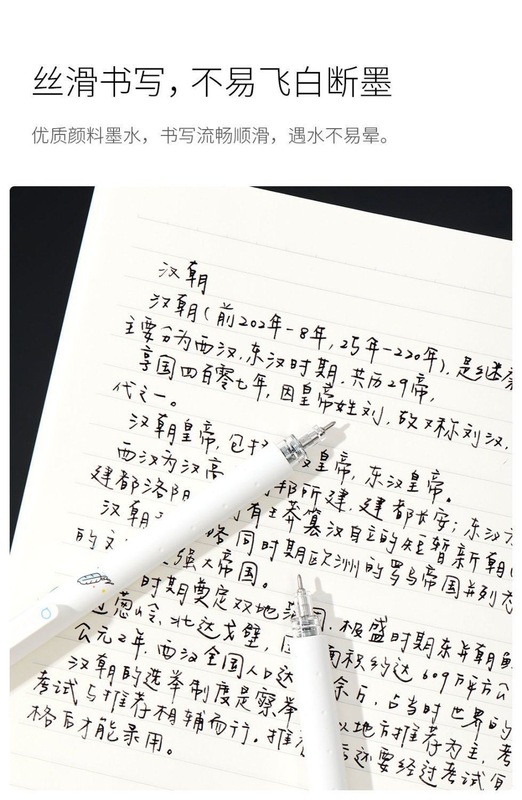 丝滑书写，不易飞白断墨
优质颜料墨水，书写流畅顺滑，遇水不易晕。
汉朝
汉朝（前202年-8年，25年-220年），是继秦
主要分为西汉，东汉时期，共历29帝，
享国四百零七年，因皇帝姓刘，故又称刘汉，
代之一。
汉朝皇帝，包括 汉皇帝，东汉皇帝。
西汉为汉高 邦所建，建都长安；东汉
建都洛阳 有王莽篡汉自立的短暂新朝
汉朝
的文 同时期欧洲的罗马帝国并列
强大帝国。
时期奠定双地
葱岭，北达戈壁， 极盛时期东并朝鲜
公元2年，西汉全国人口达 面积约达609万平方公
汉朝的选举制度是察举 余万，占当时世界的
考试与推荐相辅而行。推 以地方推荐为主，考
格后才能录用。 后还要经过考试复